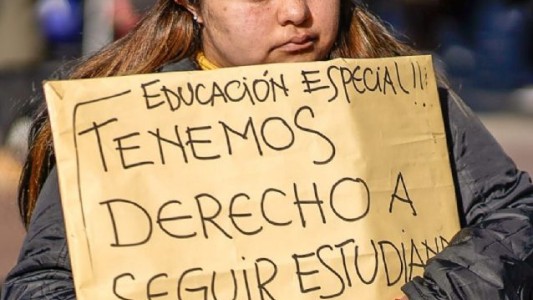 EDUCACIÓN ESPECIAL!!!
TENEMOS
DERECHO A
SEGUIR ESTUDIAND